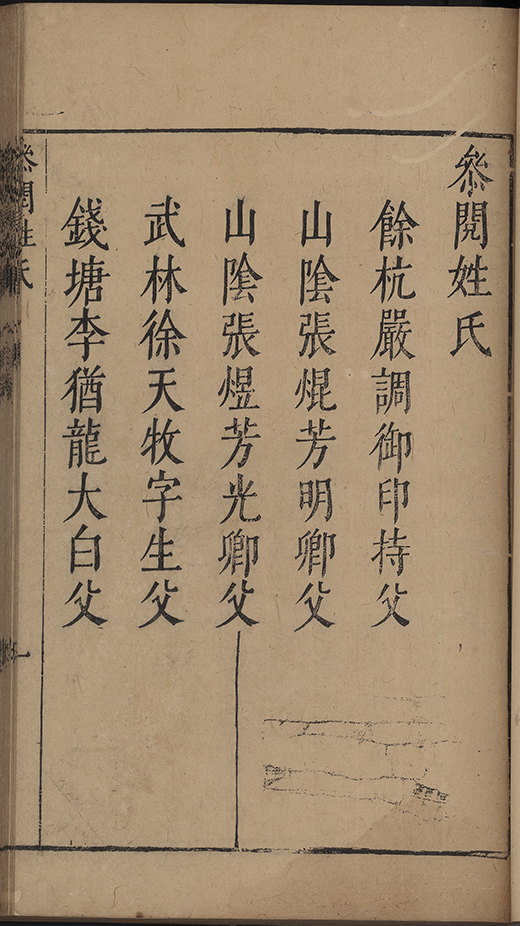 叅閱姓氏
餘杭嚴調御印持父
山陰張焜芳明卿父
山陰張煜芳光卿父
武林徐天牧字生父
錢塘李猶龍大白父
叅閱姓氏
一